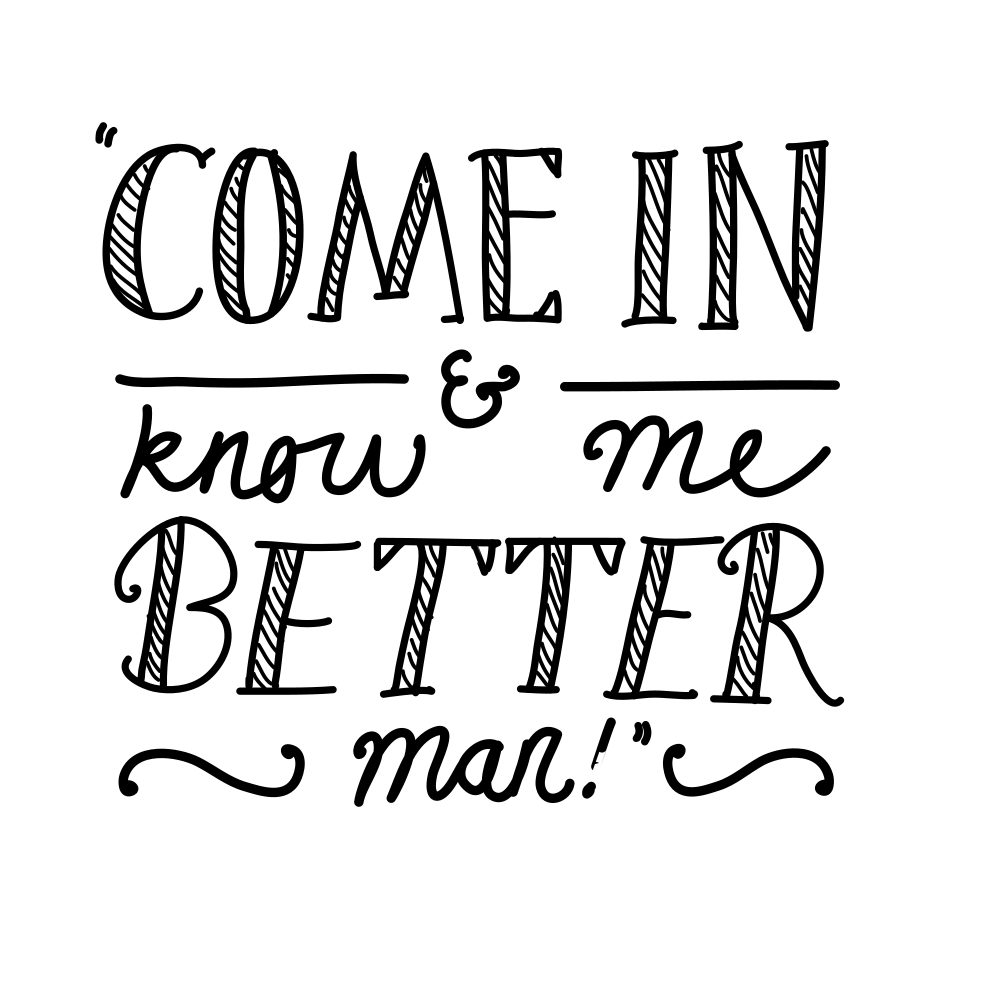 "COME IN
&
know me
BETTER
man!"